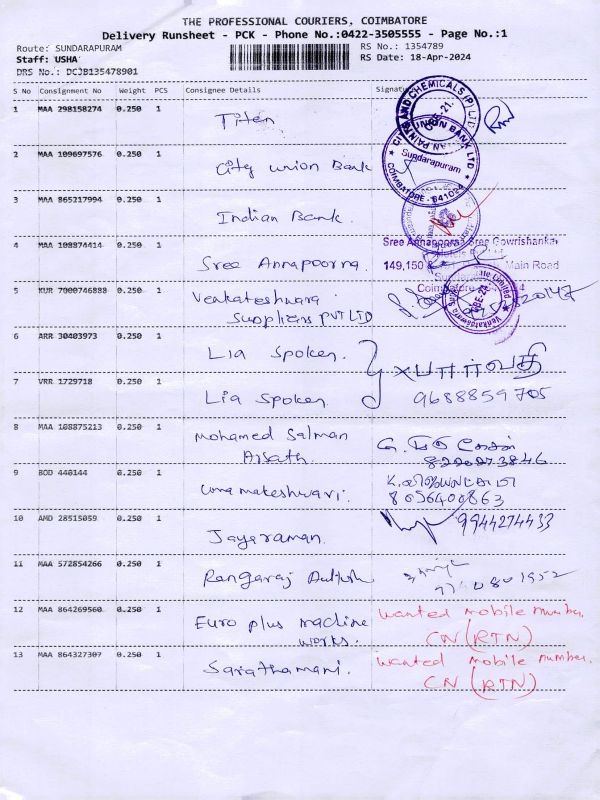 THE PROFESSIONAL COURIERS, COIMBATORE
Delivery Runsheet - PCK - Phone No.:0422-3505555 - Page No.:1
Route: SUNDARAPURAM
RS No.: 1354789
Staff: USHA
RS Date: 18-Apr-2024
DRS No.: DCJB135478901
S No Consignment No Weight PCS Consignee Details Signatu
1 MAA 298158274 0.250 1 Titen
2 MAA 109697576 0.250 1 City union Bank
CITY UNION BANK LTD
Sundarapuram
COIMBATORE - 641024
3 MAA 865217994 0.250 1 Indian Bank.
4 MAA 108874414 1 Sree Annapoorna.
Sree Annapoorna Sree Gowrishankar
149,150 Main Road
5 KUR 7000746888 0.250 1 Venkateshwara
Suppliers PVT LTD
6 ARR 30403973 0.250 1 Lia Spoken.
7 VRR 1729718 0.250 1 Lia Spoken
பார்வதி
9688859705
8 MAA 108875213 0.250 1 Mohamed Salman
Arsath.
8220273846
9 BOD 440144 0.250 1 Uma maheshwari.
8056400863
10 AMD 28515059 0.250 1 Jayaraman.
9944274433
11 MAA 572854266 0.250 1 Rangaraj
12 MAA 864269560 0.250 1 Euro plus machine
works.
wanted mobile number.
CN (RTN)
13 MAA 864327307 0.250 1 Sarathamani.
wanted mobile number.
CN (RTN)